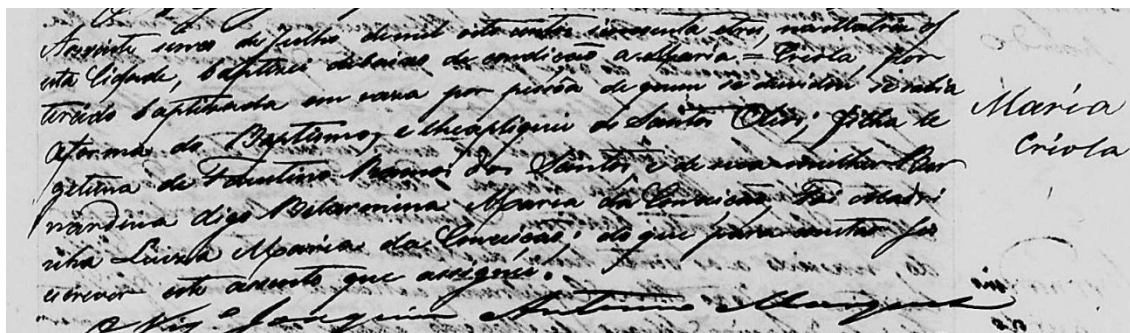 Aos vinte seves de Julho de mil oito centos secenta e tres, na Matriz d
esta Cidade, baptizei debaixo de condicão a Maria = Creola, por
ter sido baptizada em caza por pessôa de quem se duvidou se sabia
a forma do Baptismo, e lhe appliquei os Santos Oleos; filha le
getima de Faustino Ramos dos Santos, e de sua mulher Ber
nardina digo Belarmina Maria da Conceicão, Foi Madri
nha Luiza Maria da Conceicão; do que para constar fis
escrever este acento que assignei.
Vigº Joaquim Antonio Marques
Maria
Creola